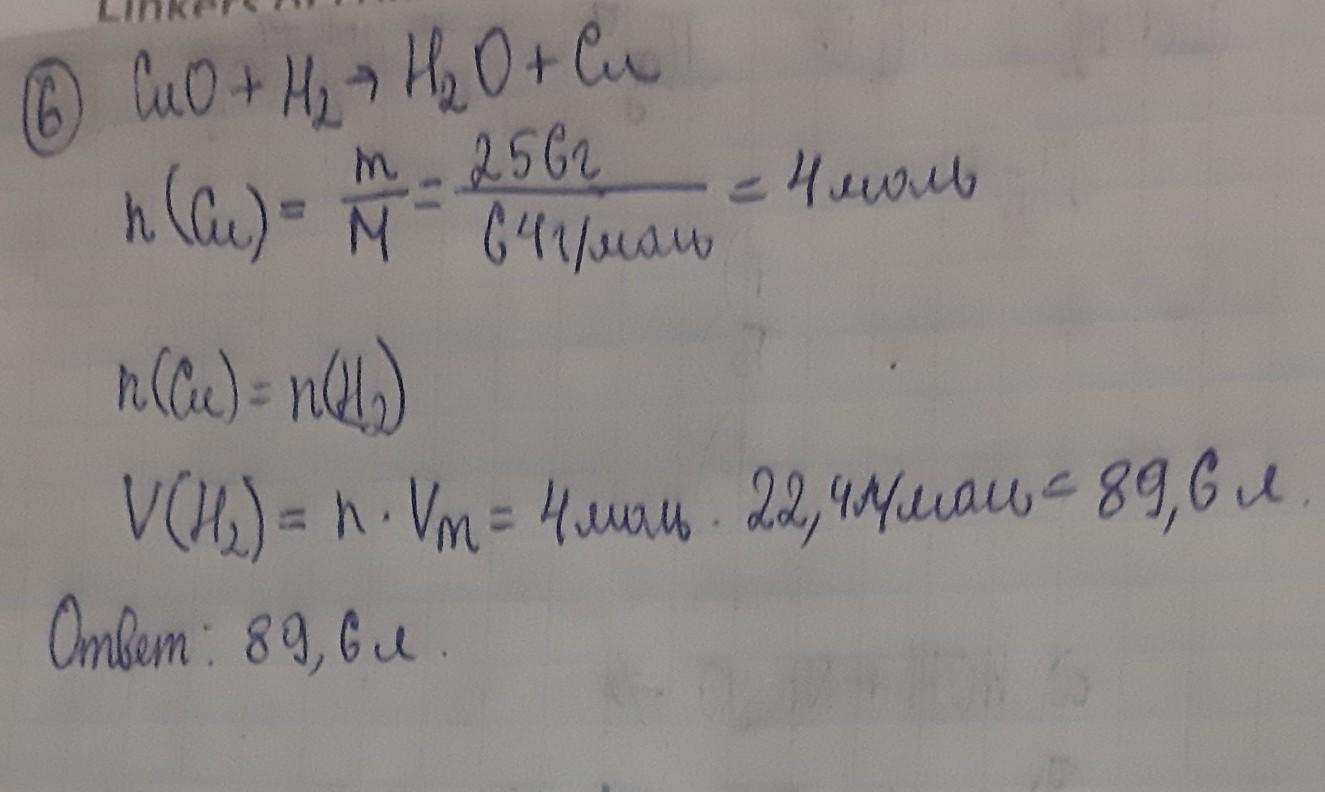 Linkers
⑥ CuO + H₂ → H₂O + Cu
n(Cu) = m/M = 256г/64г/моль = 4 моль
n(Cu) = n(H₂)
V(H₂) = n · Vm = 4 моль · 22,4 л/моль = 89,6 л.
Ответ: 89,6 л.